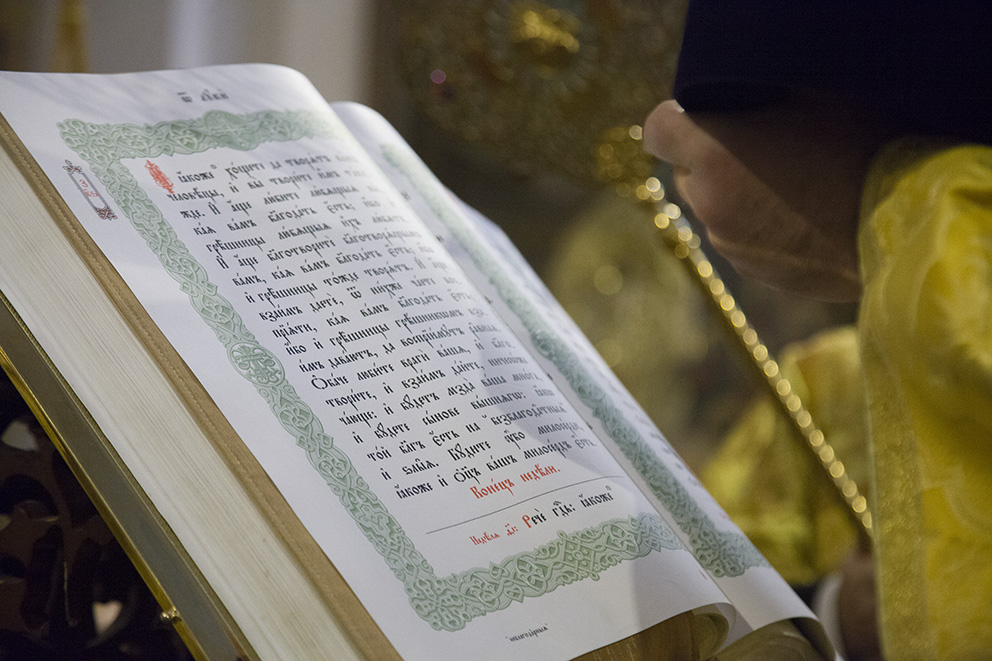 Ѿ лꙋкѝ
ꙗ҆́коже хо́щете да творѧ́тъ ва́мъ
человѣ́цы, и҆ вы̀ твори́те и҆̀мъ та́к-
жде. И҆ а҆́ще лю́бите лю́бѧщыѧ вы̀,
ка́ѧ ва́мъ благода́ть є҆́сть; и҆́бо и҆
грѣ̑шницы лю́бѧщыѧ и҆̀хъ лю́бѧтъ.
И҆ а҆́ще благотвори́те благотворѧ́щымъ
ва́мъ, ка́ѧ ва́мъ благода́ть є҆́сть; и҆́бо
и҆ грѣ̑шницы то́жде творѧ́тъ. И҆ а҆́ще
взаи́мъ дае́те, ѿ ни́хже ча́ете вос-
прїѧ́ти, ка́ѧ ва́мъ благода́ть є҆́сть;
и҆́бо и҆ грѣ̑шницы грѣ́шникѡмъ вза-
и́мъ дава́ютъ, да воспрїи́мꙋтъ ра̑внаѧ.
Ѻ҆ба́че люби́те врагѝ ва́шѧ, и҆ благо-
твори́те, и҆ взаи́мъ да́йте, ничесѡ́же
ча́юще: и҆ бꙋ́детъ мзда̀ ва́ша мно́га,
и҆ бꙋ́дете сы́нове вы́шнѧгѡ: ꙗ҆́кѡ
то́й бл҃гъ є҆́сть на безблагода̑тныѧ
и҆ ѕлы̑ѧ. Бꙋ́дите ᲂу҆̀бо милосе́рди,
ꙗ҆́коже и҆ ѻ҆ц҃ъ ва́шъ милосе́рдъ є҆́сть.
Коне́цъ недѣ́ли.
Недѣ́лѧ Речѐ гдⷭ҇ь: ꙗ҆́коже